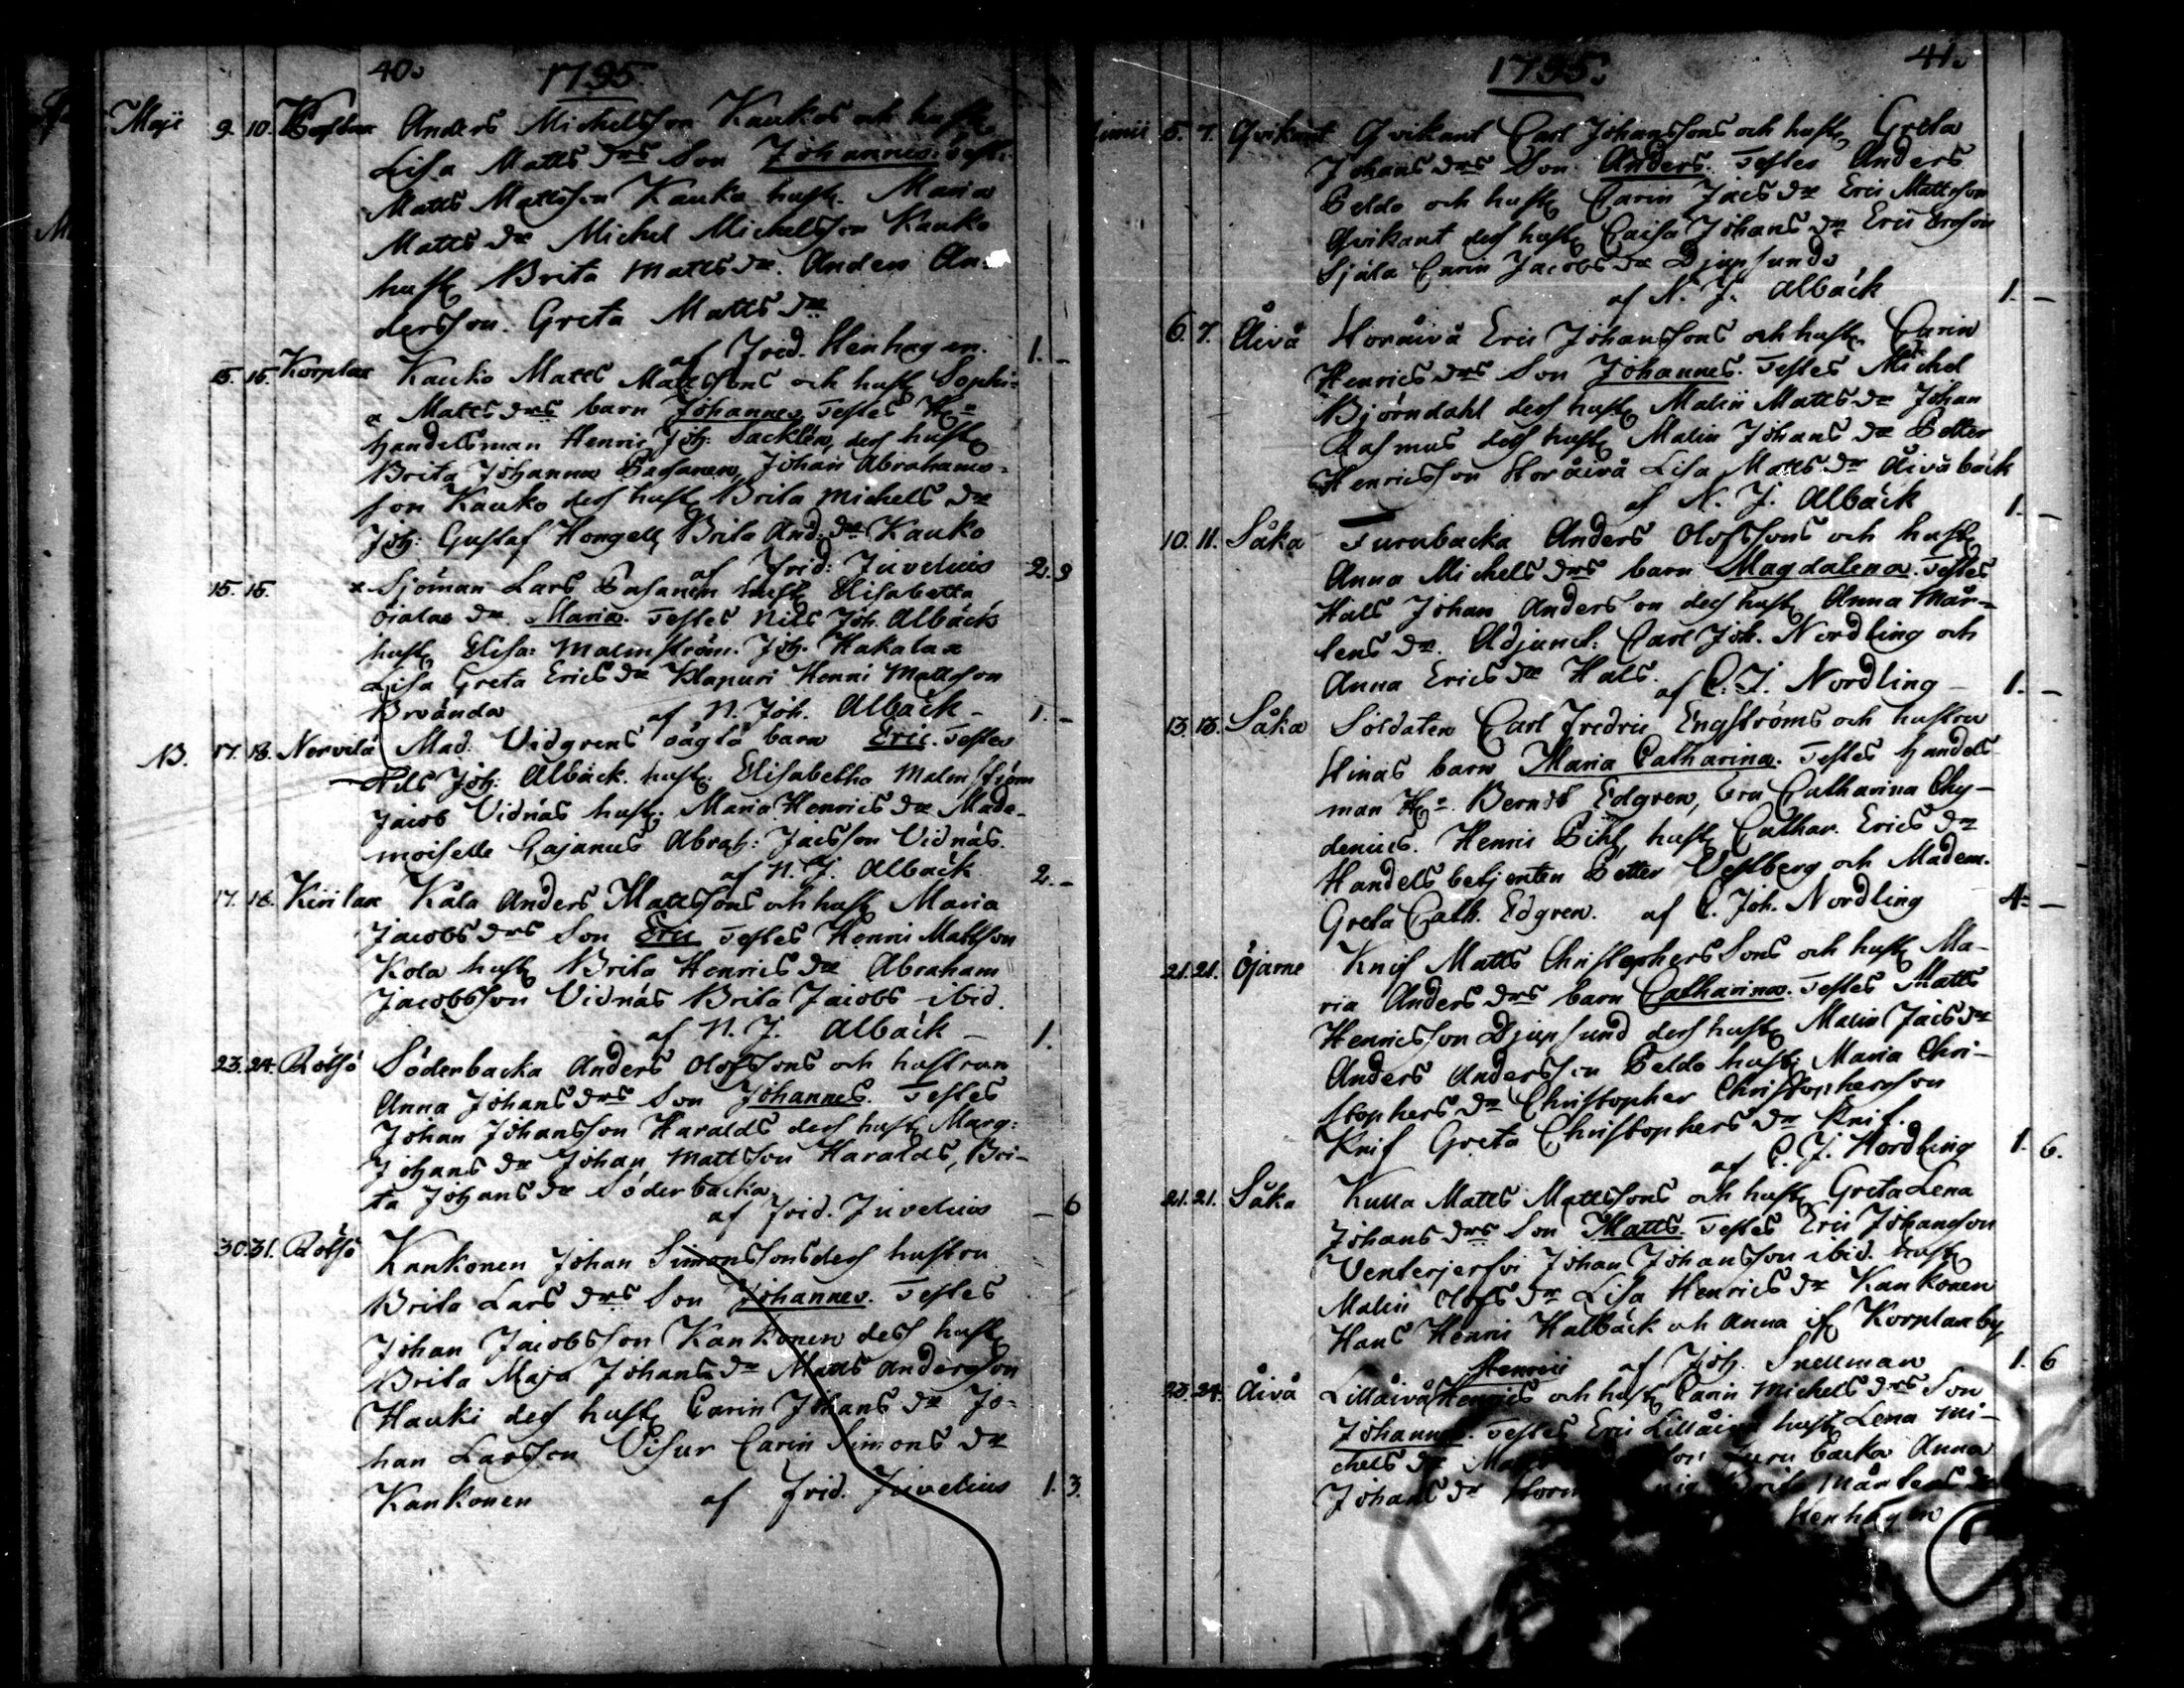 40.
1795.
Maji 9. 10. Anders Michelsson Kaukos och hust.
Lisa Matts drs Son Johannes. Test.
Matts Mattsson Kauko hust. Maria
Matts dr Michel Michelsson Kauko
hust. Brita Matts dr. Anders An-
dersson. Greta Matts dr
af Frid. Henhagen. 1. –
15. 15. Korplax Kauko Matts Mattssons och hust. Sophi-
a Matts drs barn Johannes Testes Hr
Handelsman Henric Joh: Sacklén, dess hust.
Brita Johanna Pasanen, Johan Abrahams-
son Kauko dess hust. Brita Michels dr
Joh: Gustaf Hongell, Brita And: dr Kauko
af Frid: Juvelius 2. 9
15. 15. x Sjöman Lars Pasanen hust. Elisabetta
dr. Maria. Testes Nils Joh. Albäck
hust. Elisa: Malmström. Joh. Hakalax
Lisa Greta Erics dr Klapuri Henric Mattsson
Brända af N. Joh. Albäck – 1. –
N. 17. 18. Nervilä Mad. Vidgrens oägta barn Eric. Testes
Nils Joh: Albäck. hust. Elisabetha Malmström
Jacob Vidnäs hust. Maria Henrics dr Made-
moiselle Gajanus Abrah: Jacsson Vidnäs.
af N. J. Albäck 2. –
17. 18. Kirilax Kåla Anders Mattssons och hust. Maria
Jacobs drs Son Eric Testes Henric Mattsson
Kola hust. Brita Henrics dr Abraham
Jacobsson Vidnäs Brita Jacobs – ibid.
af N. J. Albäck – 1.
23. 24. Rötsö Söderbacka Anders Olofssons och hustrun
Anna Johans drs Son Johannes. Testes
Johan Johansson Haralds dess hust. Marg:
Johans dr Johan Mattsson Haralds, Bri-
ta Johans dr Söderbacka.
af Frid. Juvelius – 6
30. 31. Rötsö Kankonen Johan Simonssons dess hustru
Brita Lars drs Son Johannes. Testes
Johan Jacobsson Kankonen dess hust.
Brita Maja Johans dr Matts Andersson
Hauki dess hust. Carin Johans dr Jo-
han Larsson Visur Carin Simons dr
Kankonen af Frid. Juvelius 1. 3.
1795.
41.
Junii 5. 7. Qvikant Qvikant Carl Johanssons och hust. Greta
Johans drs Son Anders. Testes Anders
Peldo och hust. Carin Jacs dr Eric Mattsson
Qvikant dess hust. Caisa Johans dr Eric Ersson
Själa Carin Jacobs dr Djupsunds
af N. J. Albäck 1. –
6. 7. Åivå Horåivå Eric Johanssons och hust. Carin
Henrics drs Son Johannes. Testes Michel
Björndahl dess hust. Malin Matts dr Johan
Rasmus dess hust. Malin Johans dr Petter
Henricsson Horåivå Lisa Matts dr Åivåbäck
af N. J. Albäck 1. –
10. 11. Såka Furubacka Anders Olofssons och hust.
Anna Michels drs barn Magdalena. Testes
Hals Johan Andersson dess hust. Anna Mår-
tens dr. Adjunct. Carl Joh. Nordling och
Anna Erics dr Hals. af C. J. Nordling – 1. –
13. 13. Såka Soldaten Carl Fredric Engströms och hustru
Stinas barn Maria Catharina. Testes Handels-
man Hr Berndt Edgren, Fru Catharina Chy-
denius. Henric Pihl, hust. Cathar. Erics dr
Handelsbetjenten Petter Westberg och Madem.
Greta Cath. Edgren. af C. Joh. Nordling 4. –
21. 21. Öjarne Knif Matts Christopherssons och hust. Ma-
ria Anders drs barn Catharina. Testes Matts
Henricsson Djupsund dess hust. Malin Jacs dr
Anders Andersson Peldo hust. Maria Chri-
stophers dr Christopher Christophersson
Knif Greta Christophers dr Knif.
af C. J. Nordling 1. 6.
21. 21. Såka Kulla Matts Mattssons och hust. Greta Lena
Johans drs Son Matts. Testes Eric Johansson
Venterjerfvi Johan Johansson ibid. hust.
Malin Olofs dr Lisa Henrics dr Kankonen
Hans Henric Halbäck och Anna if. Korplax by
af Joh. Snellman 1. 6
23. 24. Åivå Lillåivå Henrics och hust. Carin Michels drs Son
Johannes. Testes Eric Lillåivå hust. Lena Mi-
chels dr Furubacka Anna
Johans dr Brita Mårtens dr
Henhagen